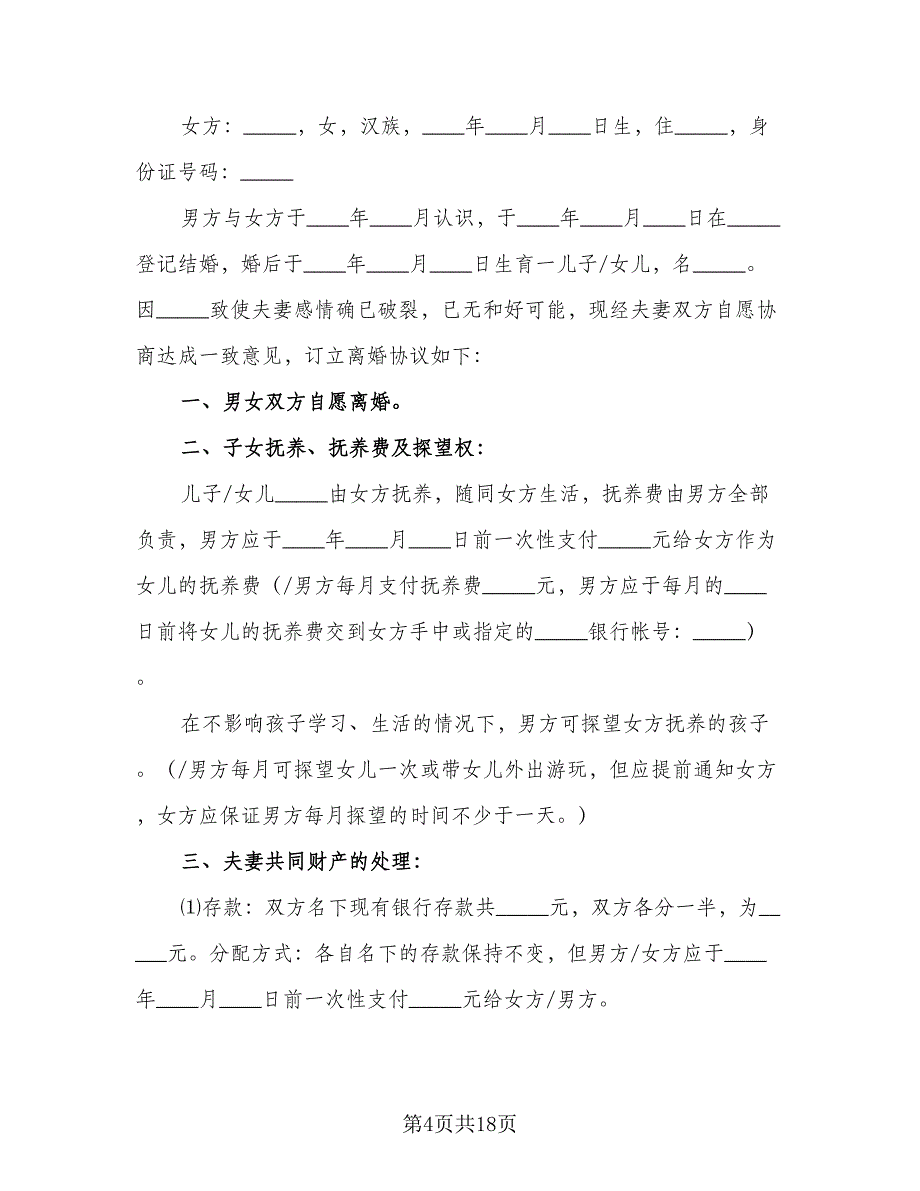 女方：_____，女，汉族，____年____月____日生，住_____，身
份证号码：_____
男方与女方于____年____月认识，于____年____月____日在_____
登记结婚，婚后于____年____月____日生育一儿子/女儿，名_____。
因_____致使夫妻感情确已破裂，已无和好可能，现经夫妻双方自愿协
商达成一致意见，订立离婚协议如下：
一、男女双方自愿离婚。
二、子女抚养、抚养费及探望权：
儿子/女儿_____由女方抚养，随同女方生活，抚养费由男方全部
负责，男方应于____年____月____日前一次性支付_____元给女方作为
女儿的抚养费（/男方每月支付抚养费_____元，男方应于每月的____
日前将女儿的抚养费交到女方手中或指定的_____银行帐号：_____）
。
在不影响孩子学习、生活的情况下，男方可探望女方抚养的孩子
。（/男方每月可探望女儿一次或带女儿外出游玩，但应提前通知女方
，女方应保证男方每月探望的时间不少于一天。）
三、夫妻共同财产的处理：
⑴存款：双方名下现有银行存款共_____元，双方各分一半，为__
___元。分配方式：各自名下的存款保持不变，但男方/女方应于____
年____月____日前一次性支付_____元给女方/男方。
第4页共18页